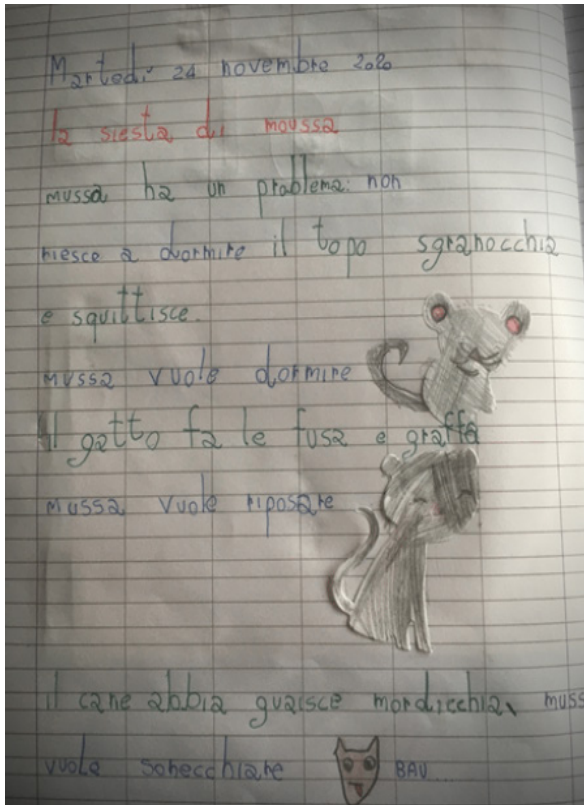 Martedì 24 novembre 2020
la siesta di moussa
mussa ha un problema: non
riesce a dormire il topo sgranocchia
e squittisce.
mussa vuole dormire
Il gatto fa le fusa e graffa
mussa vuole riposare
il cane abbia guaisce mordicchia, muss
vuole sonecchiare BAU...